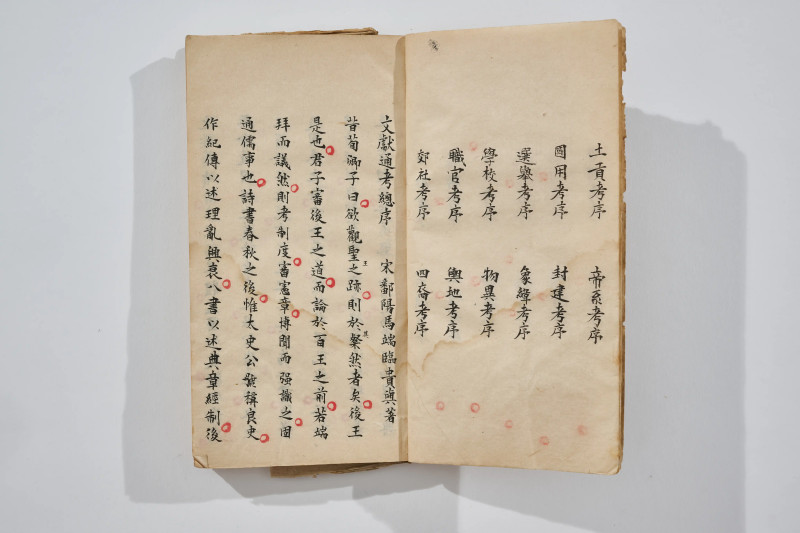 土貢考序 帝系考序
國用考序 封建考序
選舉考序 象緯考序
學校考序 物異考序
職官考序 輿地考序
郊社考序 四裔考序
文獻通考總序 宋鄱陽馬端臨貴與著
昔荀卿子曰欲觀聖王之跡則於其粲然者矣後王
是也君子審後王之道而論於百王之前若端
拜而議然則考制度審憲章博聞而强識之固
通儒事也詩書春秋之後惟太史公號稱良史
作紀傳以述理亂興衰八書以述典章經制後